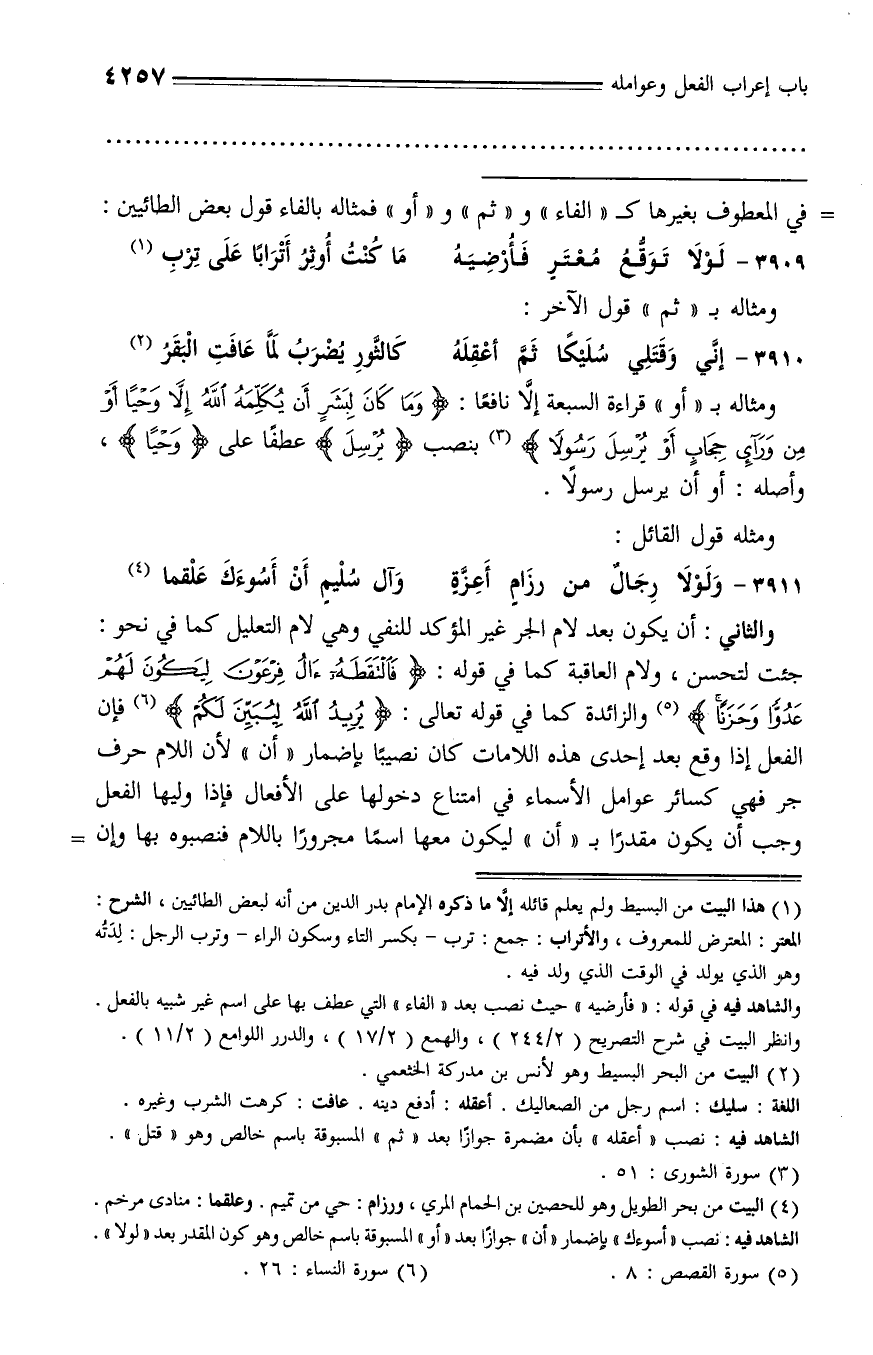 باب إعراب الفعل وعوامله ٤٢٥٧
= في المعطوف بغيرها كـ « الفاء » و « ثم » و « أو » فمثاله بالفاء قول بعض الطائيين :
٣٩٠٩ - لَوْلَا تَوَقُّعُ مُعْتَرٍ فَأُرْضِيَهُ مَا كُنْتُ أُوثِرُ أَتْرَابًا عَلَى تِرْبِ (١)
ومثاله بـ « ثم » قول الآخر :
٣٩١٠ - إنَّي وَقَتَلِي سُلَيْكًا ثَمَّ أعْقِلَهُ كَالثَّورِ يُضْرَبُ لَمَّا عَافَتِ الْبَقَرُ (٢)
ومثاله بـ « أو » قراءة السبعة إلَّا نافعًا : ﴿ وَمَا كَانَ لِبَشَرٍ أَن يُكَلِّمَهُ ٱللَّهُ إِلَّا وَحْيًا أَوْ
مِن وَرَآيِٕ حِجَابٍ أَوْ يُرْسِلَ رَسُولًا ﴾ (٣) بنصب ﴿ يُرْسِلَ ﴾ عطفًا على ﴿ وَحْيًا ﴾ ،
وأصله : أو أن يرسل رسولًا .
ومثله قول القائل :
٣٩١١ - وَلَوْلَا رِجَالٌ من رزَامٍ أَعِزَّةٍ وَآل سُلْيمٍ أَنْ أَسُوءَكَ عَلْقما (٤)
والثاني : أن يكون بعد لام الجر غير المؤكد للنفي وهي لام التعليل كما في نحو :
جئت لتحسن ، ولام العاقبة كما في قوله : ﴿ فَٱلْتَقَطَهُۥٓ ءَالُ فِرْعَوْنَ لِيَكُونَ لَهُمْ
عَدُوًّا وَحَزَنًاۗ ﴾ (٥) والزائدة كما في قوله تعالى : ﴿ يُرِيدُ ٱللَّهُ لِيُبَيِّنَ لَكُمْ ﴾ (٦) فإن
الفعل إذا وقع بعد إحدى هذه اللامات كان نصيبًا بإضمار « أن » لأن اللام حرف
جر فهي كسائر عوامل الأسماء في امتناع دخولها على الأفعال فإذا وليها الفعل
وجب أن يكون مقدرًا بـ « أن » ليكون معها اسمًا مجرورًا باللام فنصبوه بها وإن =
(١) هذا البيت من البسيط ولم يعلم قائله إلَّا ما ذكره الإمام بدر الدين من أنه لبعض الطائيين ، الشرح :
المعتر : المعترض للمعروف ، والأتراب : جمع : ترب - بكسر التاء وسكون الراء - وترب الرجل : لِدَتُه
وهو الذي يولد في الوقت الذي ولد فيه .
والشاهد فيه في قوله : « فأرضيه » حيث نصب بعد « الفاء » التي عطف بها على اسم غير شبيه بالفعل .
وانظر البيت في شرح التصريح ( ٢٤٤/٢ ) ، والهمع ( ١٧/٢ ) ، والدرر اللوامع ( ١١/٢ ) .
(٢) البيت من البحر البسيط وهو لأنس بن مدركة الخثعمي .
اللغة : سليك : اسم رجل من الصعاليك . أعقله : أدفع دينه . عافت : كرهت الشرب وغيره .
الشاهد فيه : نصب « أعقله » بأن مضمرة جوازًا بعد « ثم » المسبوقة باسم خالص وهو « قتل » .
(٣) سورة الشورى : ٥١ .
(٤) البيت من بحر الطويل وهو للحصين بن الحمام المري ، ورزام : حي من تميم . وعلقما : منادى مرخم .
الشاهد فيه : نصب « أسوءك » بإضمار « أن » جوازًا بعد « أو » المسبوقة باسم خالص وهو كون المقدر بعد « لولا » .
(٥) سورة القصص : ٨ . (٦) سورة النساء : ٢٦ .